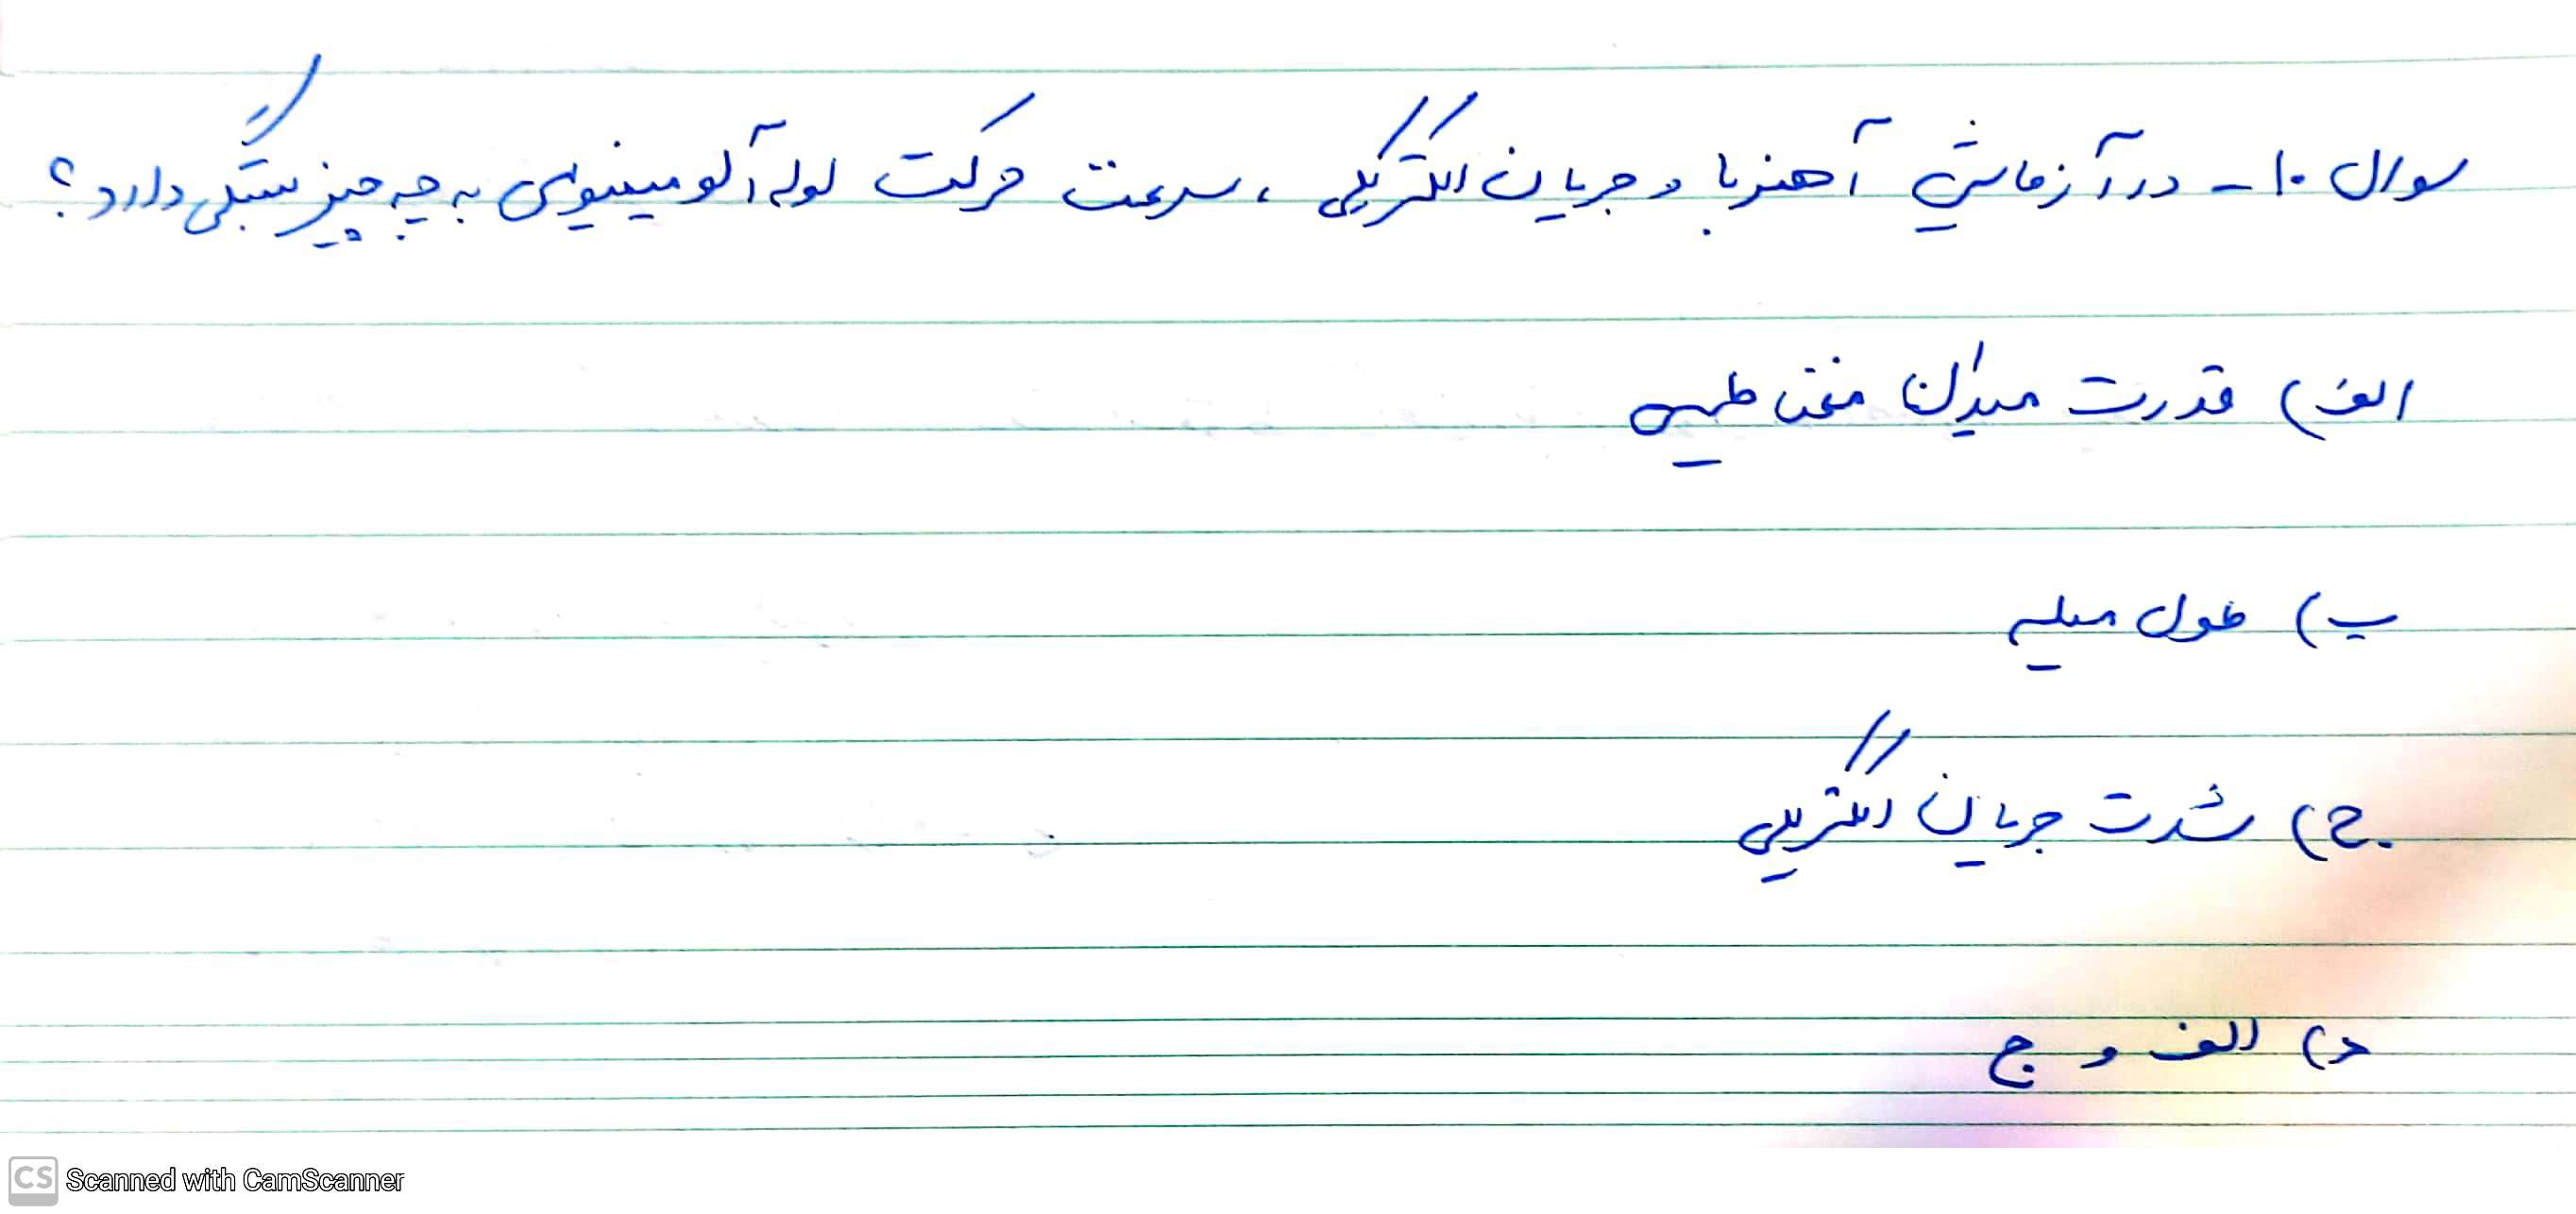 سوال ۱۰ - در آزمایش آهنربا و جریان الکتریکی ، سرعت حرکت لوله آلومینیومی به چه چیز بستگی دارد؟
الف) قدرت میدان مغناطیسی
ب) طول میله
ج) شدت جریان الکتریکی
د) الف و ج
CS Scanned with CamScanner